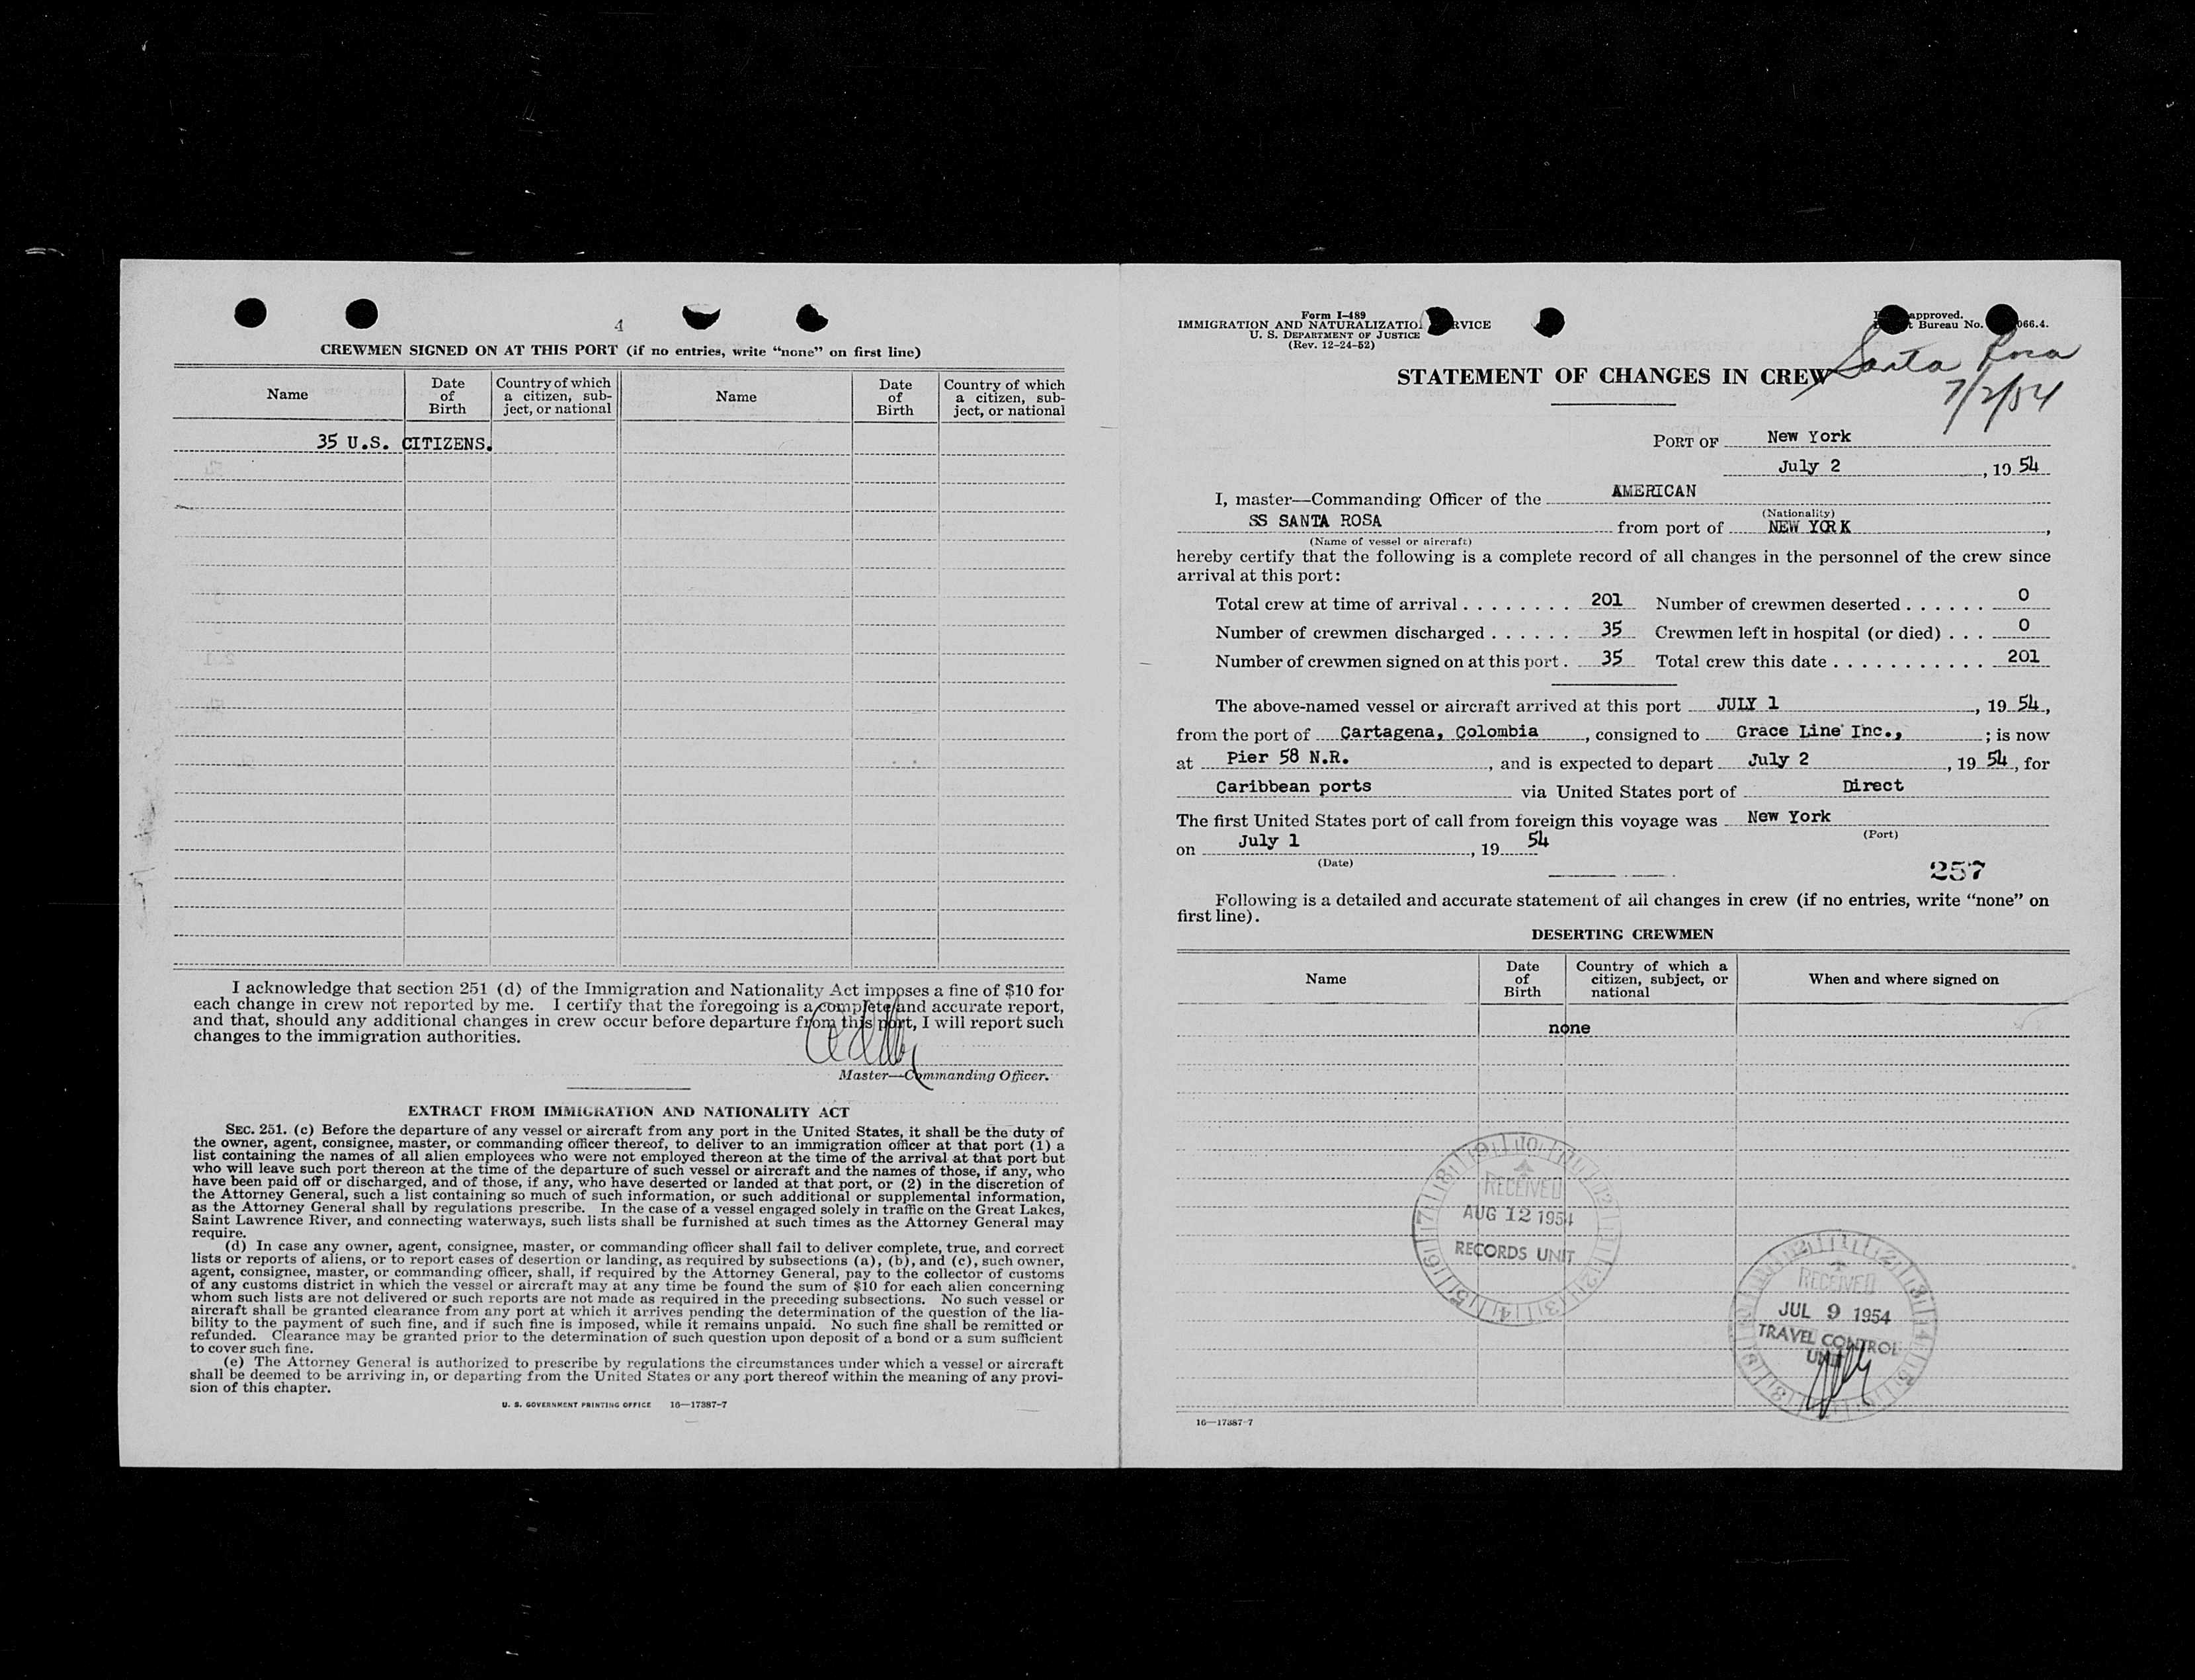 4
CREWMEN SIGNED ON AT THIS PORT (if no entries, write “none” on first line)
Name
Date of Birth
Country of which a citizen, subject, or national
Name
Date of Birth
Country of which a citizen, subject, or national
35 U.S. CITIZENS.
I acknowledge that section 251 (d) of the Immigration and Nationality Act imposes a fine of $10 for
each change in crew not reported by me. I certify that the foregoing is a complete and accurate report,
and that, should any additional changes in crew occur before departure from this port, I will report such
changes to the immigration authorities.
Master—Commanding Officer.
EXTRACT FROM IMMIGRATION AND NATIONALITY ACT
SEC. 251. (c) Before the departure of any vessel or aircraft from any port in the United States, it shall be the duty of
the owner, agent, consignee, master, or commanding officer thereof, to deliver to an immigration officer at that port (1) a
list containing the names of all alien employees who were not employed thereon at the time of the arrival at that port but
who will leave such port thereon at the time of the departure of such vessel or aircraft and the names of those, if any, who
have been paid off or discharged, and of those, if any, who have deserted or landed at that port, or (2) in the discretion of
the Attorney General, such a list containing so much of such information, or such additional or supplemental information,
as the Attorney General shall by regulations prescribe. In the case of a vessel engaged solely in traffic on the Great Lakes,
Saint Lawrence River, and connecting waterways, such lists shall be furnished at such times as the Attorney General may
require.
(d) In case any owner, agent, consignee, master, or commanding officer shall fail to deliver complete, true, and correct
lists or reports of aliens, or to report cases of desertion or landing, as required by subsections (a), (b), and (c), such owner,
agent, consignee, master, or commanding officer, shall, if required by the Attorney General, pay to the collector of customs
of any customs district in which the vessel or aircraft may at any time be found the sum of $10 for each alien concerning
whom such lists are not delivered or such reports are not made as required in the preceding subsections. No such vessel or
aircraft shall be granted clearance from any port at which it arrives pending the determination of the question of the lia-
bility to the payment of such fine, and if such fine is imposed, while it remains unpaid. No such fine shall be remitted or
refunded. Clearance may be granted prior to the determination of such question upon deposit of a bond or a sum sufficient
to cover such fine.
(e) The Attorney General is authorized to prescribe by regulations the circumstances under which a vessel or aircraft
shall be deemed to be arriving in, or departing from the United States or any port thereof within the meaning of any provi-
sion of this chapter.
U. S. GOVERNMENT PRINTING OFFICE 16—17387-7
Form I-489
IMMIGRATION AND NATURALIZATIO RVICE
U. S. DEPARTMENT OF JUSTICE
(Rev. 12-24-52)
approved.
Bureau No. 066.4.
Santa Rosa
7/2/54
STATEMENT OF CHANGES IN CREW
PORT OF New York
July 2, 19 54
I, master—Commanding Officer of the AMERICAN
(Nationality)
SS SANTA ROSA from port of NEW YORK,
(Name of vessel or aircraft)
hereby certify that the following is a complete record of all changes in the personnel of the crew since
arrival at this port:
Total crew at time of arrival ........ 201 Number of crewmen deserted ...... 0
Number of crewmen discharged ...... 35 Crewmen left in hospital (or died) ... 0
Number of crewmen signed on at this port . 35 Total crew this date ............ 201
The above-named vessel or aircraft arrived at this port JULY 1, 19 54,
from the port of Cartagena, Colombia, consigned to Grace Line Inc.,; is now
at Pier 58 N.R., and is expected to depart July 2, 19 54, for
Caribbean ports via United States port of Direct
The first United States port of call from foreign this voyage was New York
(Port)
on July 1, 19 54
(Date)
257
Following is a detailed and accurate statement of all changes in crew (if no entries, write “none” on
first line).
DESERTING CREWMEN
Name
Date of Birth
Country of which a citizen, subject, or national
When and where signed on
none
RECEIVED
AUG 12 1954
RECORDS UNIT
RECEIVED
JUL 9 1954
TRAVEL CONTROL
UNIT
16—17387-7